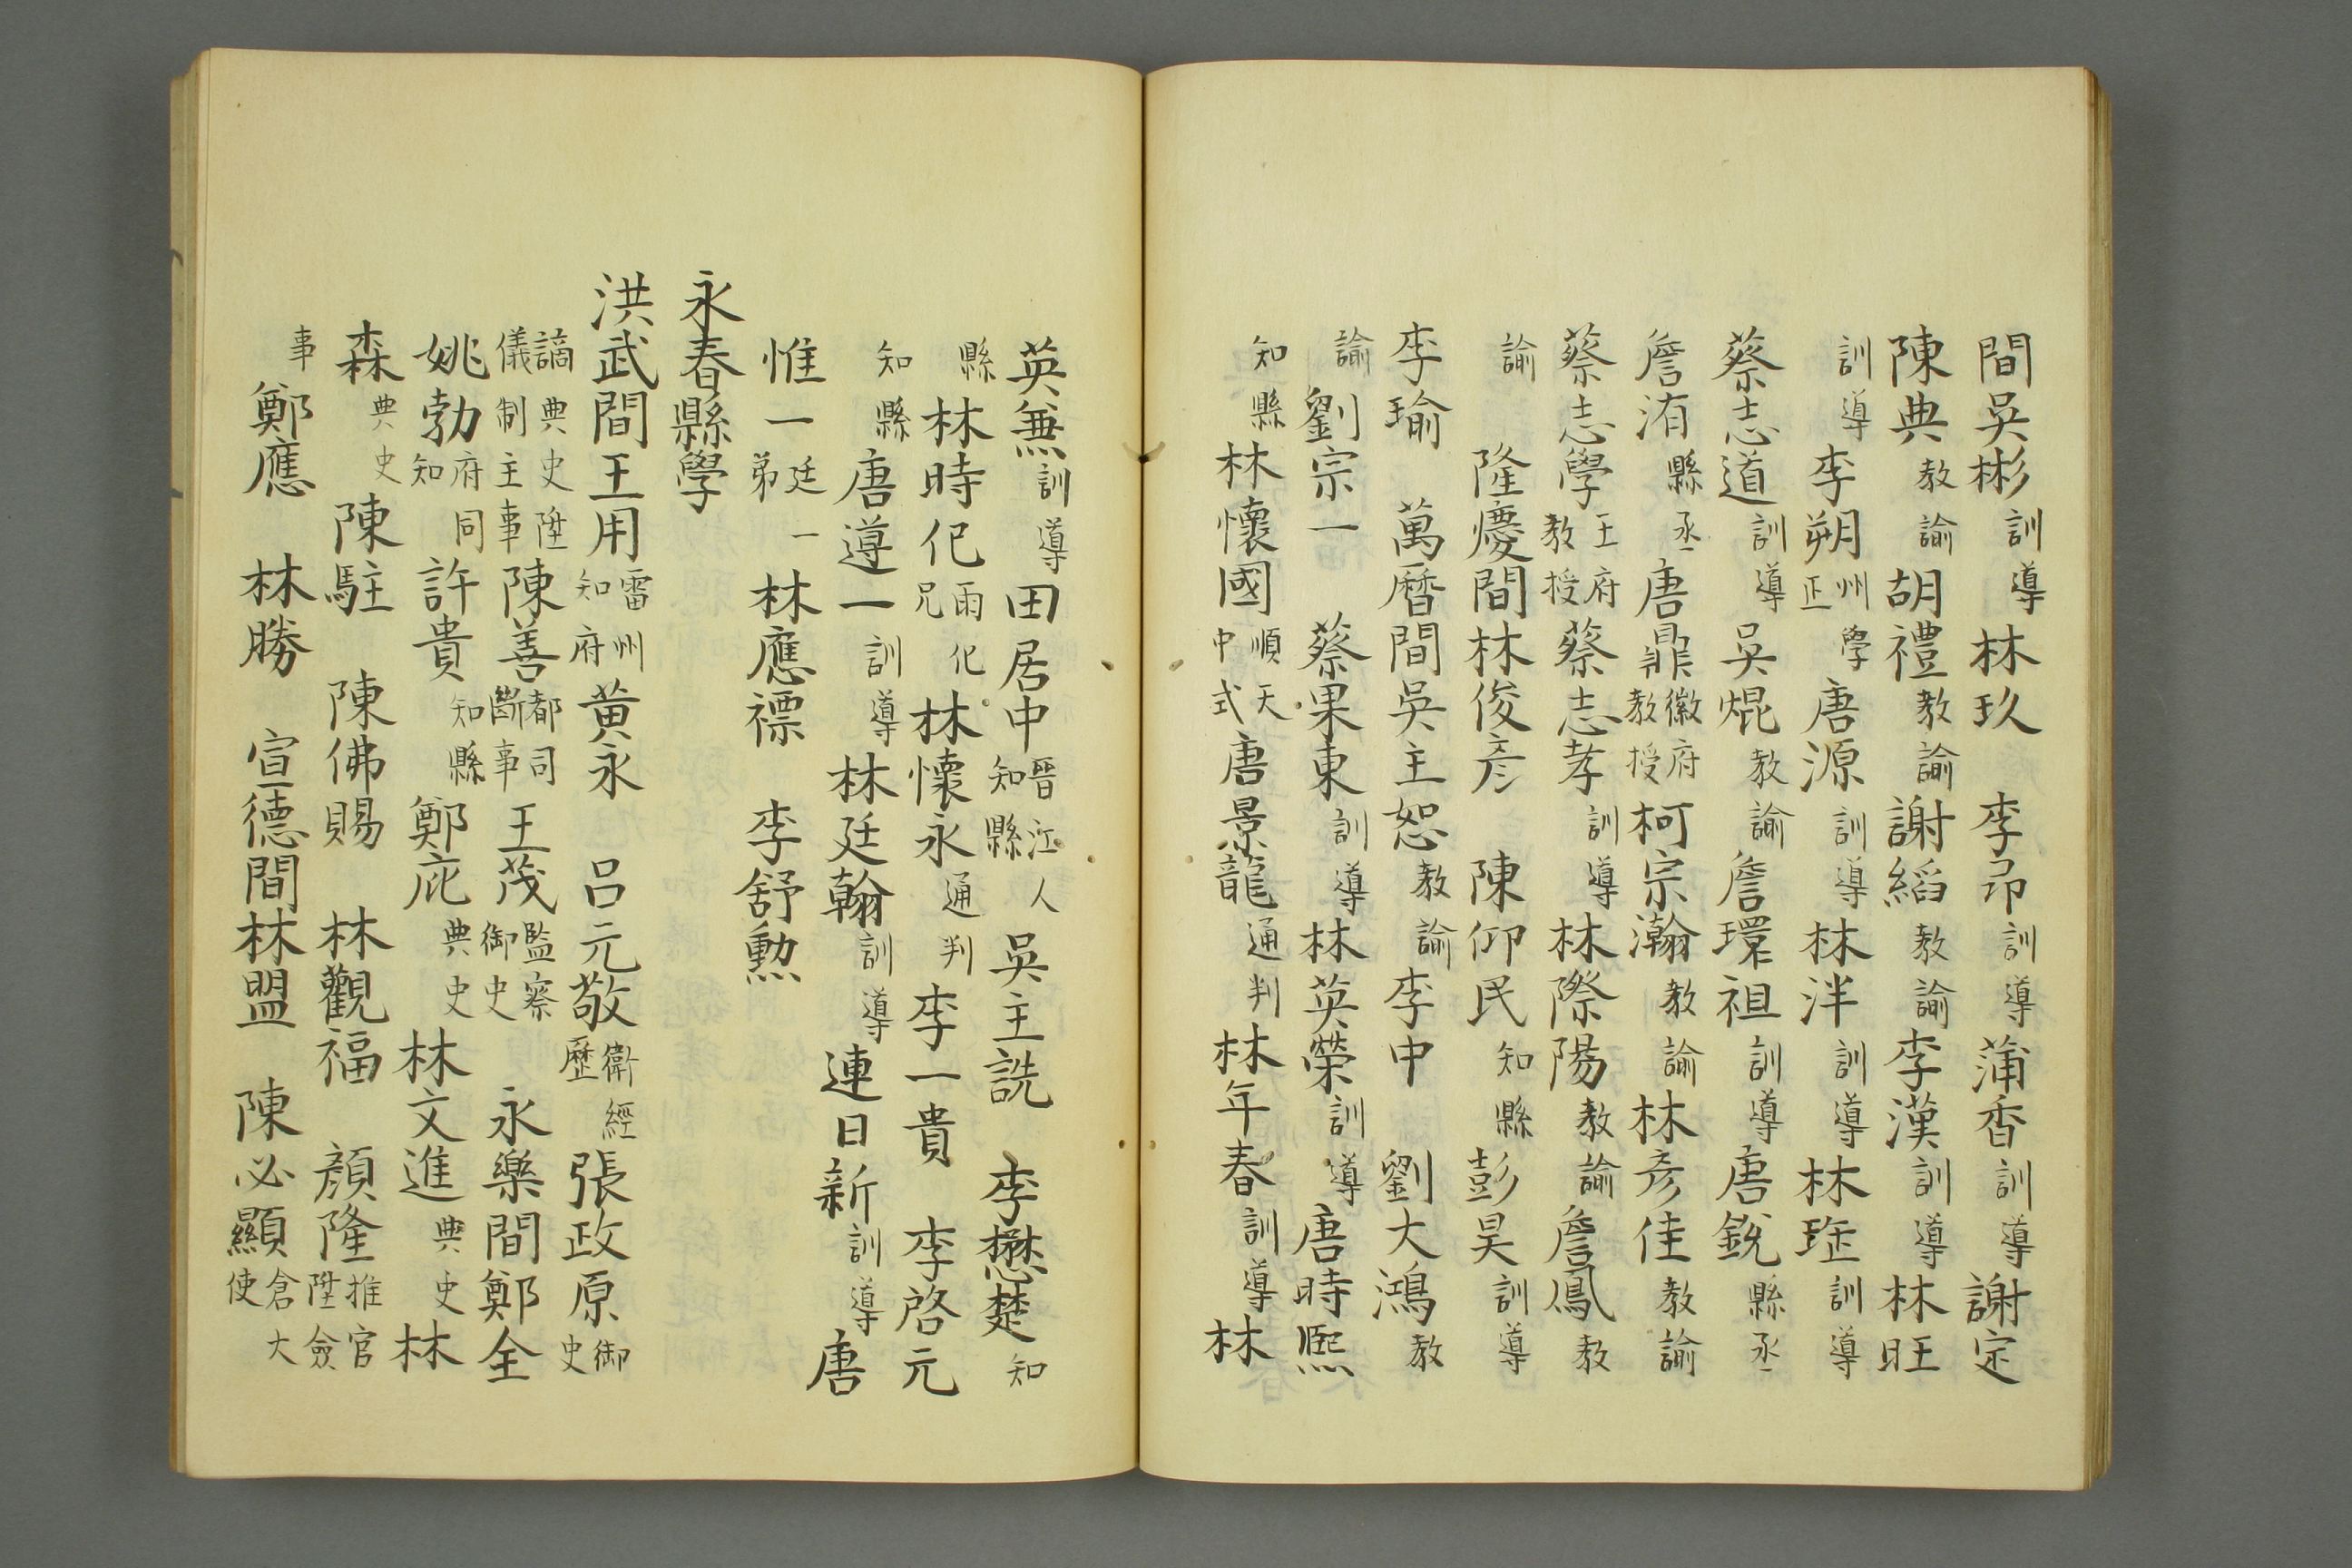 間吳彬訓導林玖　李昂訓導蒲香訓導謝定
陳典教諭胡禮教諭謝縚教諭李漢訓導林旺
訓導李朔州學正唐源訓導林泮訓導林玨訓導
蔡志道訓導吳焜教諭詹環祖訓導唐銳縣丞
詹洧縣丞唐鼎徽府教授柯宗瀚教諭林彥佳教諭
蔡志學王府教授蔡志孝訓導林際陽教諭詹鳳教
諭　隆慶間林俊彥　陳仰民知縣彭昊訓導
李瑜　萬曆間吳主恕教諭李中　劉大鴻教
諭劉宗一　蔡果東訓導林英榮訓導唐時熙
知縣林懷國順天中式唐景龍通判林年春訓導林
英無訓導田居中晉江人知縣吳主詵　李懋楚知
縣林時化雨化兄林懷永通判李一貴　李啓元
知縣唐遵一訓導林廷翰訓導連日新訓導唐
惟一廷一弟林應標　李舒勲
永春縣學
洪武間王用雷州知府黃永　呂元敬衛經歷張政原御史
謫典史陞儀制主事陳善都司斷事王茂監察御史永樂間鄭全
姚勃府同知許貴知縣鄭庇典史林文進典史林
森典史　陳駐　陳佛賜　林觀福　顏隆推官陞僉
事鄭應　林勝　宣德間林盟　陳必顯倉大使